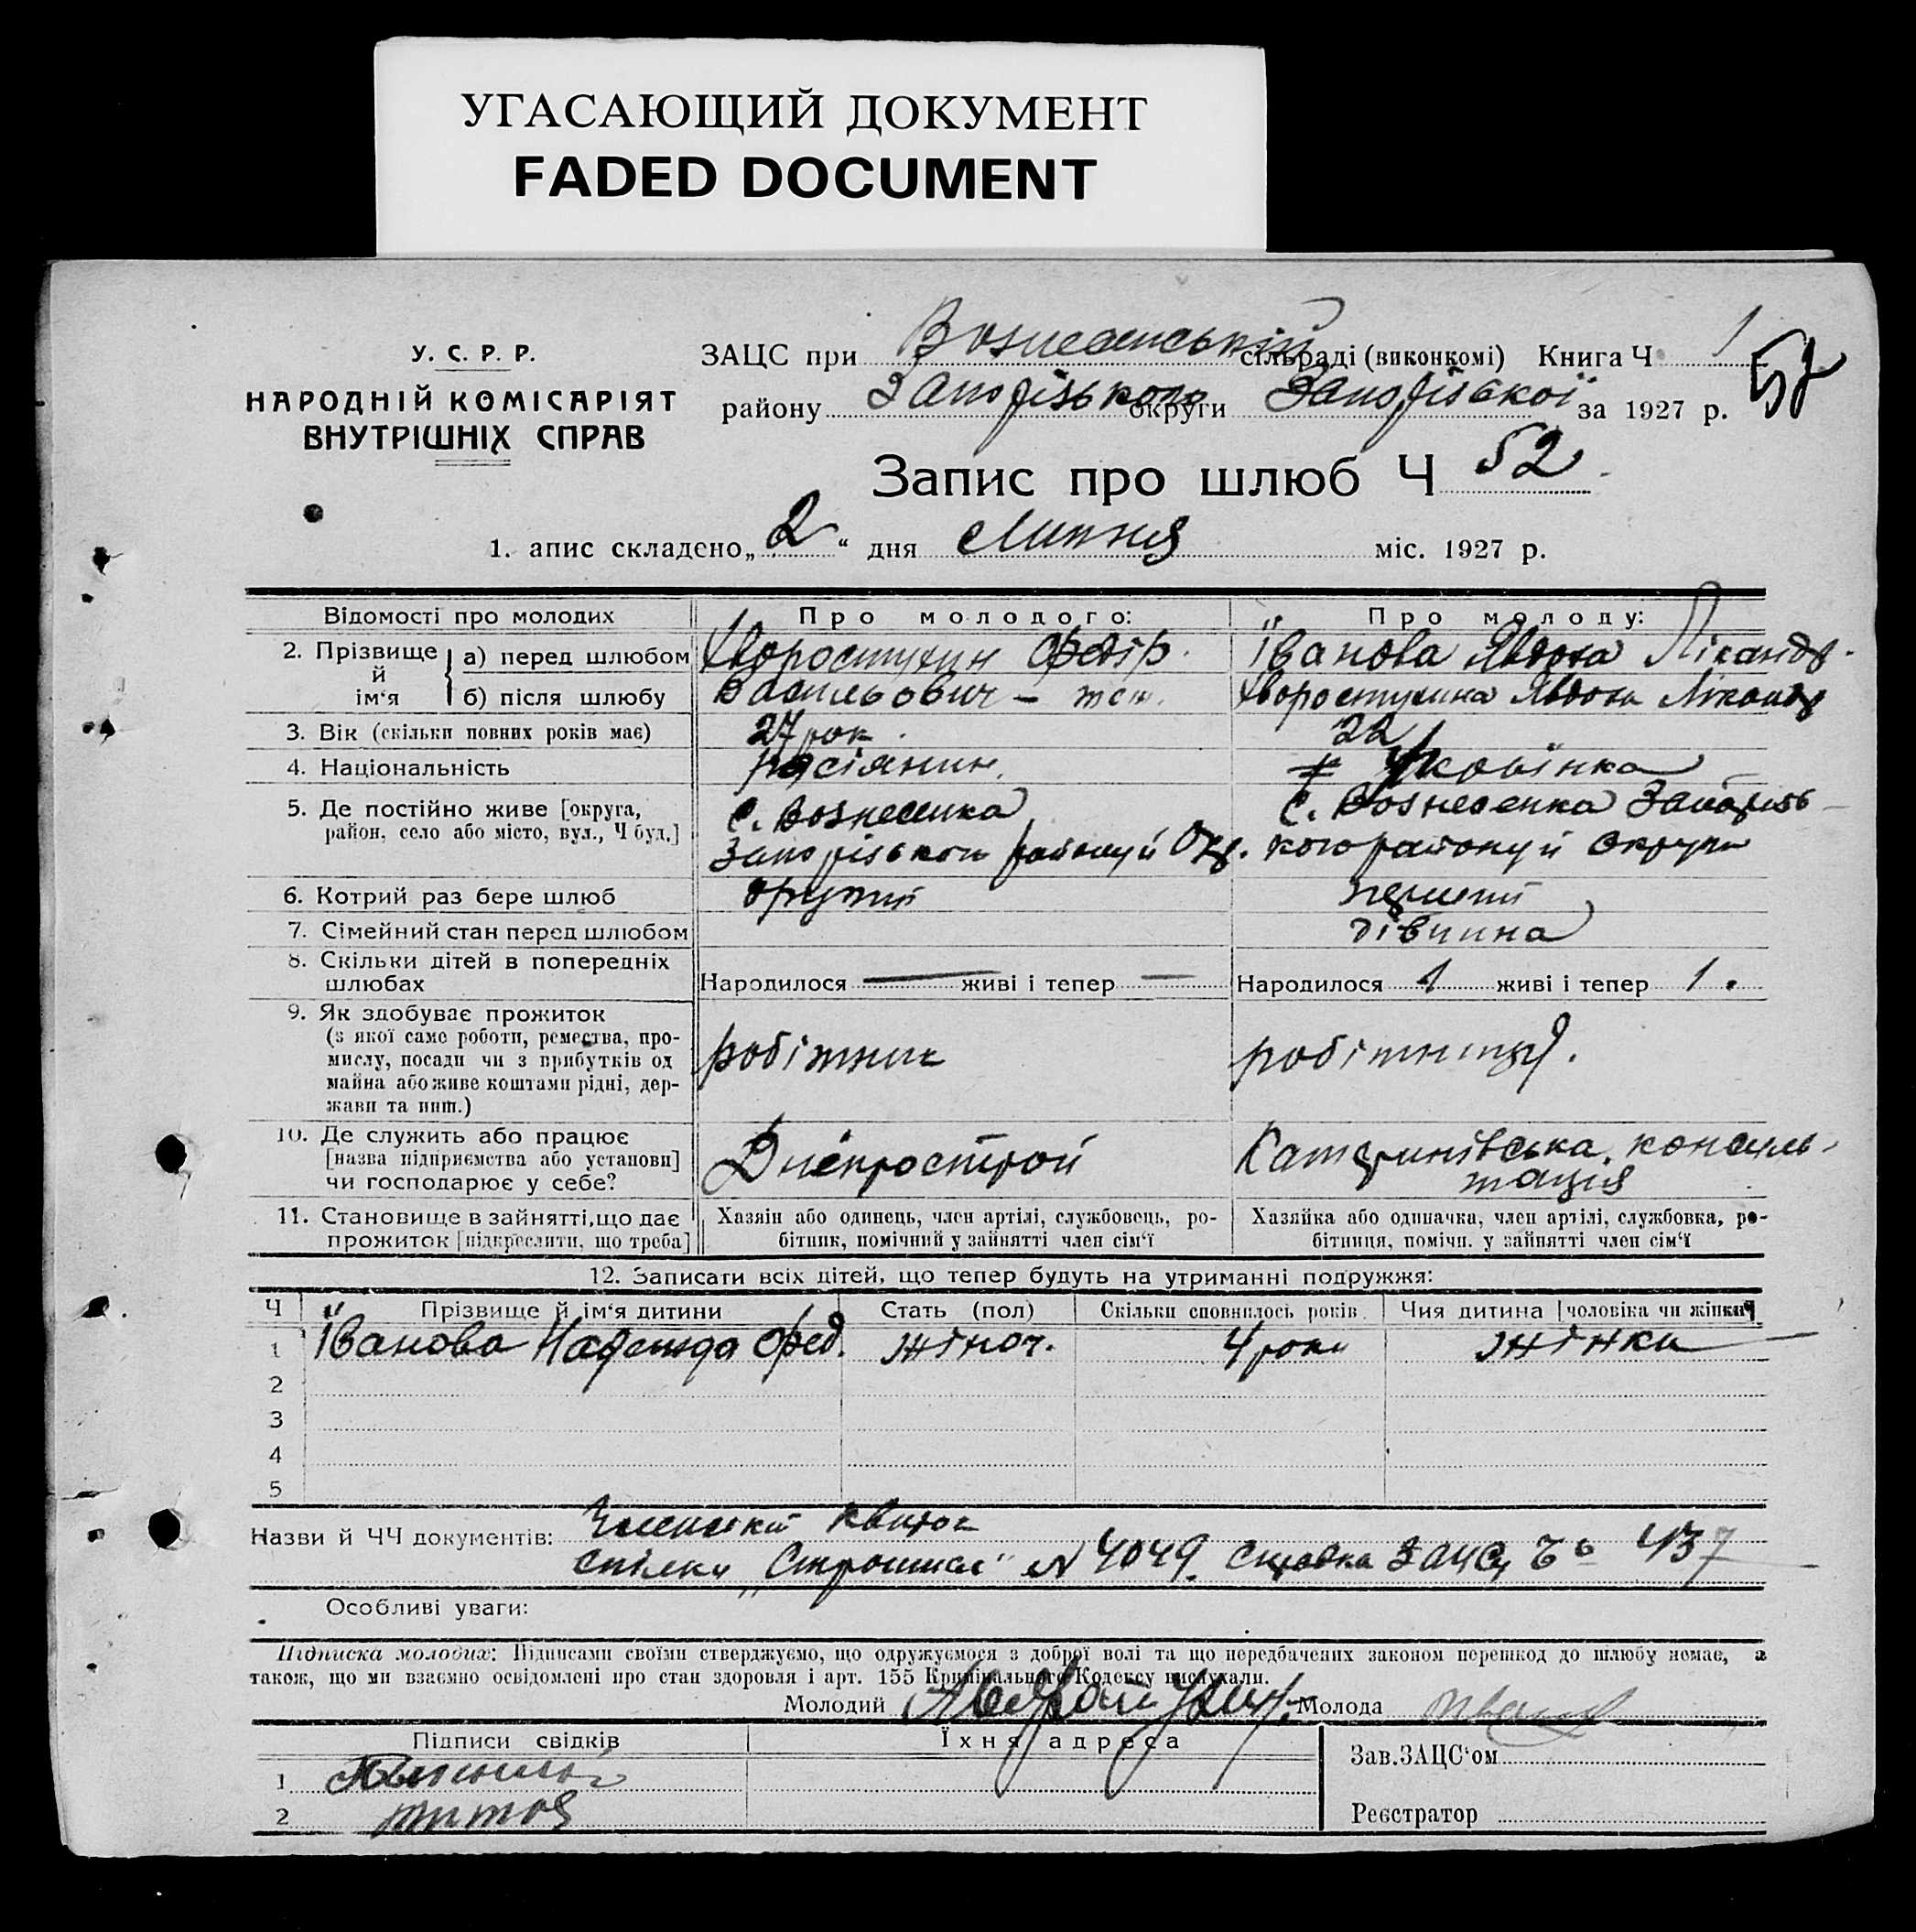 УГАСАЮЩИЙ ДОКУМЕНТ
FADED DOCUMENT
У. С. Р. Р.
НАРОДНІЙ КОМІСАРІЯТ
ВНУТРІШНІХ СПРАВ
ЗАЦС при Вознесенській сільраді (виконкомі) Книга Ч 1
52
району Запорізького округи Запорізької за 1927 р.
Запис про шлюб Ч 52
1. апис складено „2“ дня Липня міс. 1927 р.
Відомості про молодих Про молодого: Про молоду:
2. Прізвище й ім‘я
а) перед шлюбом Хворостухин Федір Іванова Явдоха Лікандр.
б) після шлюбу Васильович – теж. Хворостухина Явдоха Лікандр
3. Вік (скільки повних років має) 27 рок. 22
4. Національність росіянин. Українка
5. Де постійно живе [округа, с. Вознесенка с. Вознесенка Запорізь-
район, село або місто, вул., Ч буд.] Запорізького району й Окр. кого району й округи
6. Котрий раз бере шлюб другий перший
7. Сімейний стан перед шлюбом дівчина
8. Скільки дітей в попередніх
шлюбах Народилося — живі і тепер — Народилося 1 живі і тепер 1.
9. Як здобуває прожиток
(з якої саме роботи, ремества, про-
мислу, посади чи з прибутків од робітник робітниця.
майна або живе коштами рідні, дер-
жави та инш.)
10. Де служить або працює
[назва підприємства або установи] Дніпрострой Катеринівська консуль-
чи господарює у себе? тація
11. Становище в зайнятті, що дає Хазяїн або одинець, член артілі, службовець, ро- Хазяйка або одиначка, член артілі, службовка, ро-
прожиток [підкреслити, що треба] бітник, помічний у зайнятті член сім‘ї бітниця, помічн. у зайнятті член сім‘ї
12. Записати всіх дітей, що тепер будуть на утриманні подружжя:
Ч Прізвище й ім‘я дитини Стать (пол) Скільки сповнилось років Чия дитина [чоловіка чи жінки]
1 Іванова Надежда Фед. жіноч. 4 роки жінки
2
3
4
5
Назви й ЧЧ документів: Членський квиток
спілки „Строитель“ № 4049. справка ЗАЦС 437
Особливі уваги:
Підписка молодих: Підписами своїми стверджуємо, що одружуємося з доброї волі та що передбачених законом перешкод до шлюбу немає, а
також, що ми взаємно освідомлені про стан здоровля і арт. 155 Кримінального Кодексу вислухали.
Молодий Молода
Підписи свідків Їхня адреса
Зав. ЗАЦС‘ом
1
2
Реєстратор